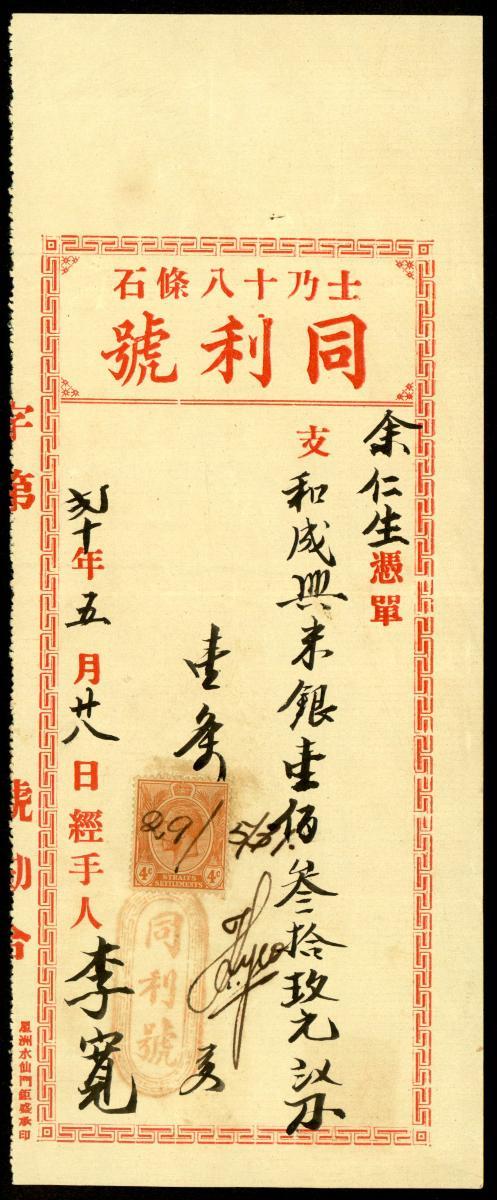 士乃十八條石
同利號
余仁生憑單
支和成興來銀壹佰叁拾玖元
壹角
29/5/31.
4c 4c
STRAITS
SETTLEMENTS
同利號
弍十年五月廿八日經手人李寬
字第
號
星洲水仙門鉅盛承印